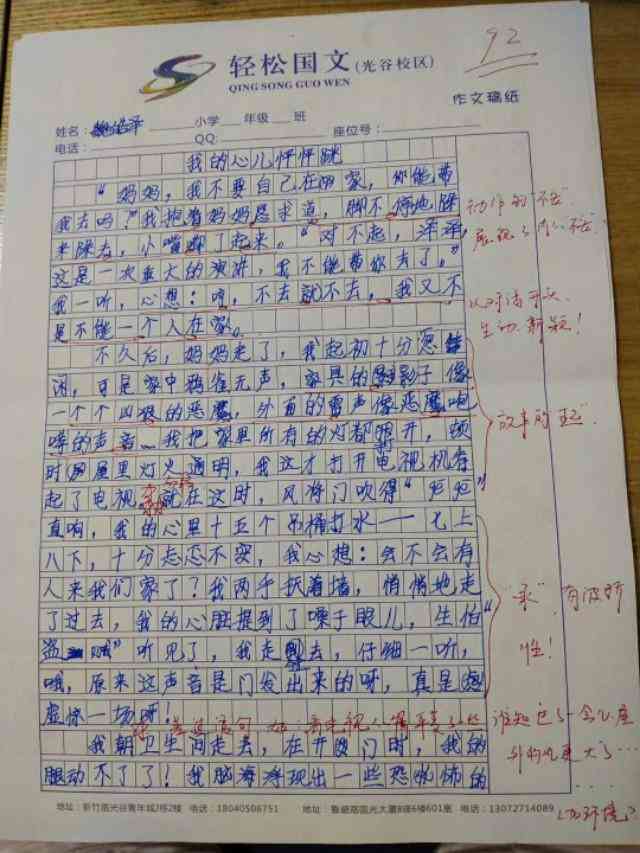 轻松国文(光谷校区)
QING SONG GUO WEN
92
作文稿纸
姓名: 小学 年级 班
电话: QQ: 座位号:
我的心儿怦怦跳
“妈妈,我不要自己在家,你能带
我去吗?”我抱着妈妈恳求道,脚不停地跺
来跺去,小嘴都了起来。“对不起,泽泽,
这是一次重大的演讲,我不能带你去了。”
我一听,心想:哼,不去就不去,我又不
是不能一个人在家。
不久后,妈妈走了,我起初十分悠
闲,可是家中鸦雀无声,家具的影子像
一个个凶狠的恶魔,外面的雷声像恶魔咆
哮的声音、我把家里所有的灯都打开,顿
时屋里灯火通明,我这才打开电视机看
起了电视 就在这时,风将门吹得“咚咚”
直响,我的心里十五个吊桶打水——七上
八下,十分忐忑不安,我心想:会不会有
人来我们家了?我两手扶着墙,悄悄地走
了过去,我的心脏提到了嗓子眼儿,生怕“
盗贼”听见了,我走过去,仔细一听,
哦,原来这声音是门发出来的呀,真是
虚惊一场呀!
我朝卫生间走去,在开厕门时,我的
腿动不了了!我脑海浮现出一些恐怖的
动作的“不舍”
以对话开头
生动、新颖!
故事的“起”
“承”,有波折
性!
地址:新竹路光谷青年城7栋2楼 电话:18040506751 地址:鲁磨路国光大厦B栋6楼601室 电话:13072714089